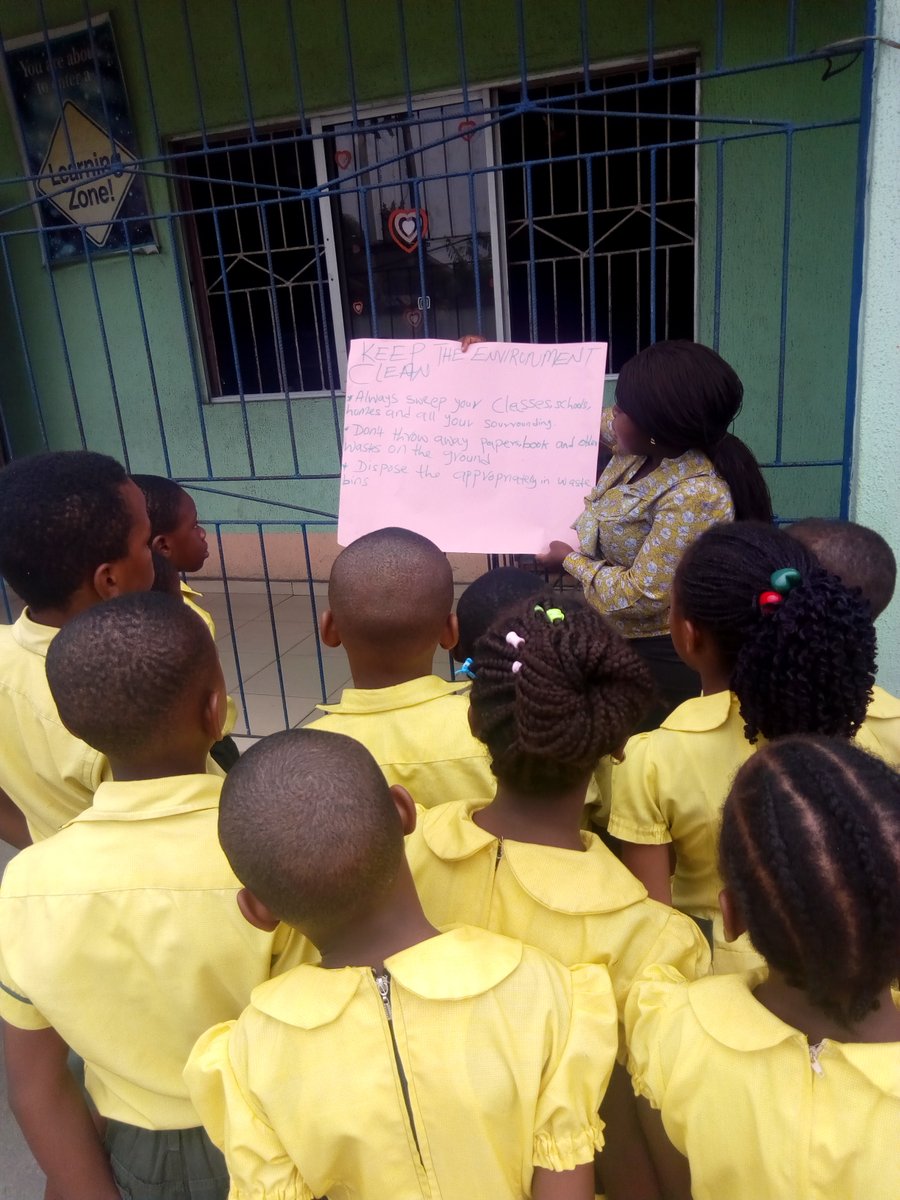 You are about
to enter a
Learning
Zone!
KEEP THE ENVIRONMENT
CLEAN
* Always sweep your Classes schools,
homes and all your sourrounding.
* Don't throw away papers book and other
wastes on the ground
* Dispose the appropriately in waste
bins